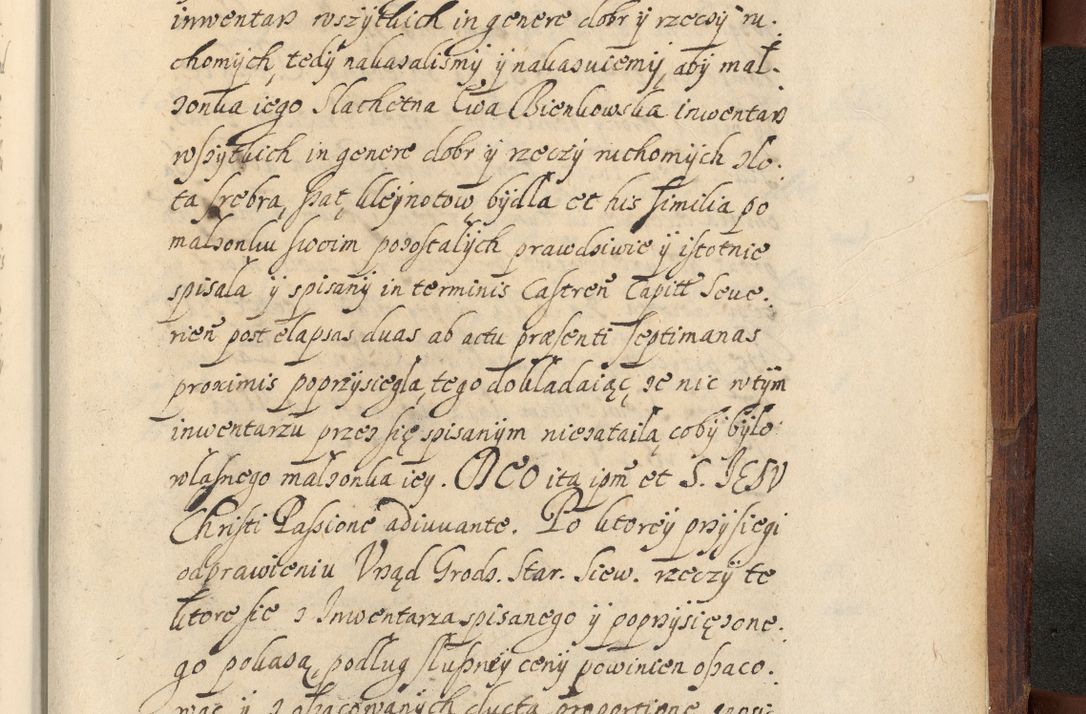 inwentarz wszytkich in genere dobr ÿ rzeczÿ ru.
chomÿch, tedÿ nakazalismÿ ÿ nakazuiemÿ, abÿ mał.
zonka iego Slachetna Ewa Bienkowska inwentarz
wszytkich in genere dobr ÿ rzeczÿ ruchomÿch zło.
ta srebra, szat, kleÿnotow, bÿdla et his similia po
małzonku swoim pozostałÿch prawdziwie ÿ istotnie
spisała ÿ spisanÿ in terminis Castren Capitt Seue.
rien post elapsas duas ab actu præsenti septimanas
proximis poprzysiegla, tego dokładaiąc, ze nic w tÿm
inwentarzu przez się spisanÿm niezataiła coby bÿło
własnego małzonka ieÿ. DEO ita ipm et S. JESV
Christi Passione adiuuante. Po ktoreÿ przysiegi
odprawieniu Vrząd Grodz. Star. Siew. rzeczÿ te
ktore się z Inwentarza spisanego ÿ poprzysięzone.
go pokazą, podług slusznÿ cenÿ powinien oszaco.
wac ÿ z oszacowanÿch ducta proportione